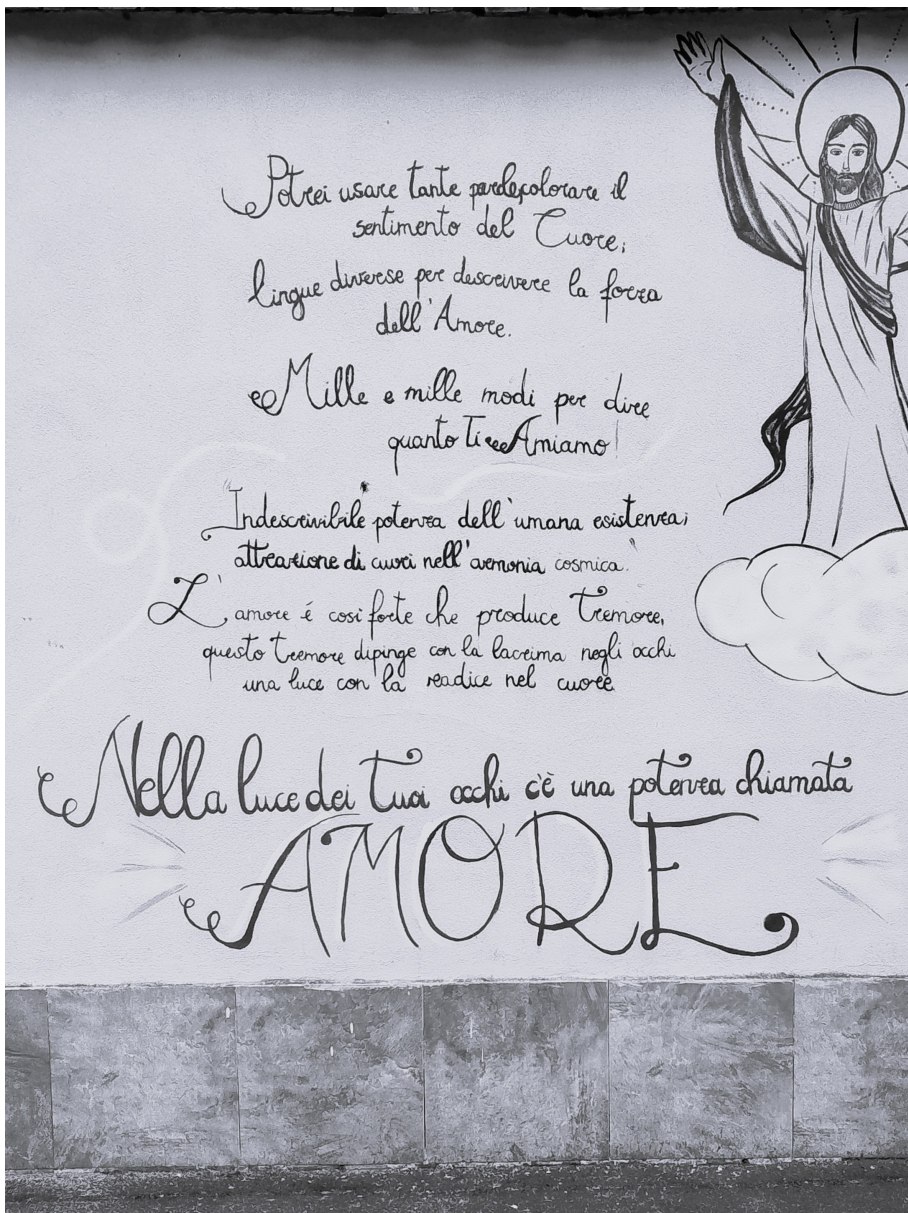 Potrei usare tante colorare il
sentimento del Cuore;
lingue diverse per descrivere la forza
dell'Amore.
Mille e mille modi per dire
quanto Ti Amiamo!
"Indescrivibile potenza dell'umana esistenza;
attrazione di cuori nell'armonia cosmica."
L'amore é così forte che produce Tremore,
questo Tremore dipinge con la lacrima negli occhi
una luce con la radice nel cuore
Nella luce dei Tuoi occhi c'è una potenza chiamata
AMORE